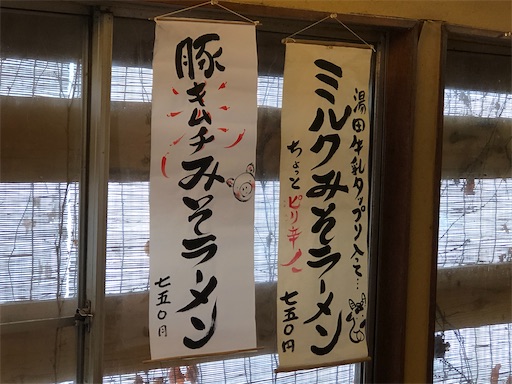 湯田牛乳タップリ入って…
ミルクみそラーメン
ちょっとピリ辛
七五〇円
豚キムチみそラーメン
七五〇円